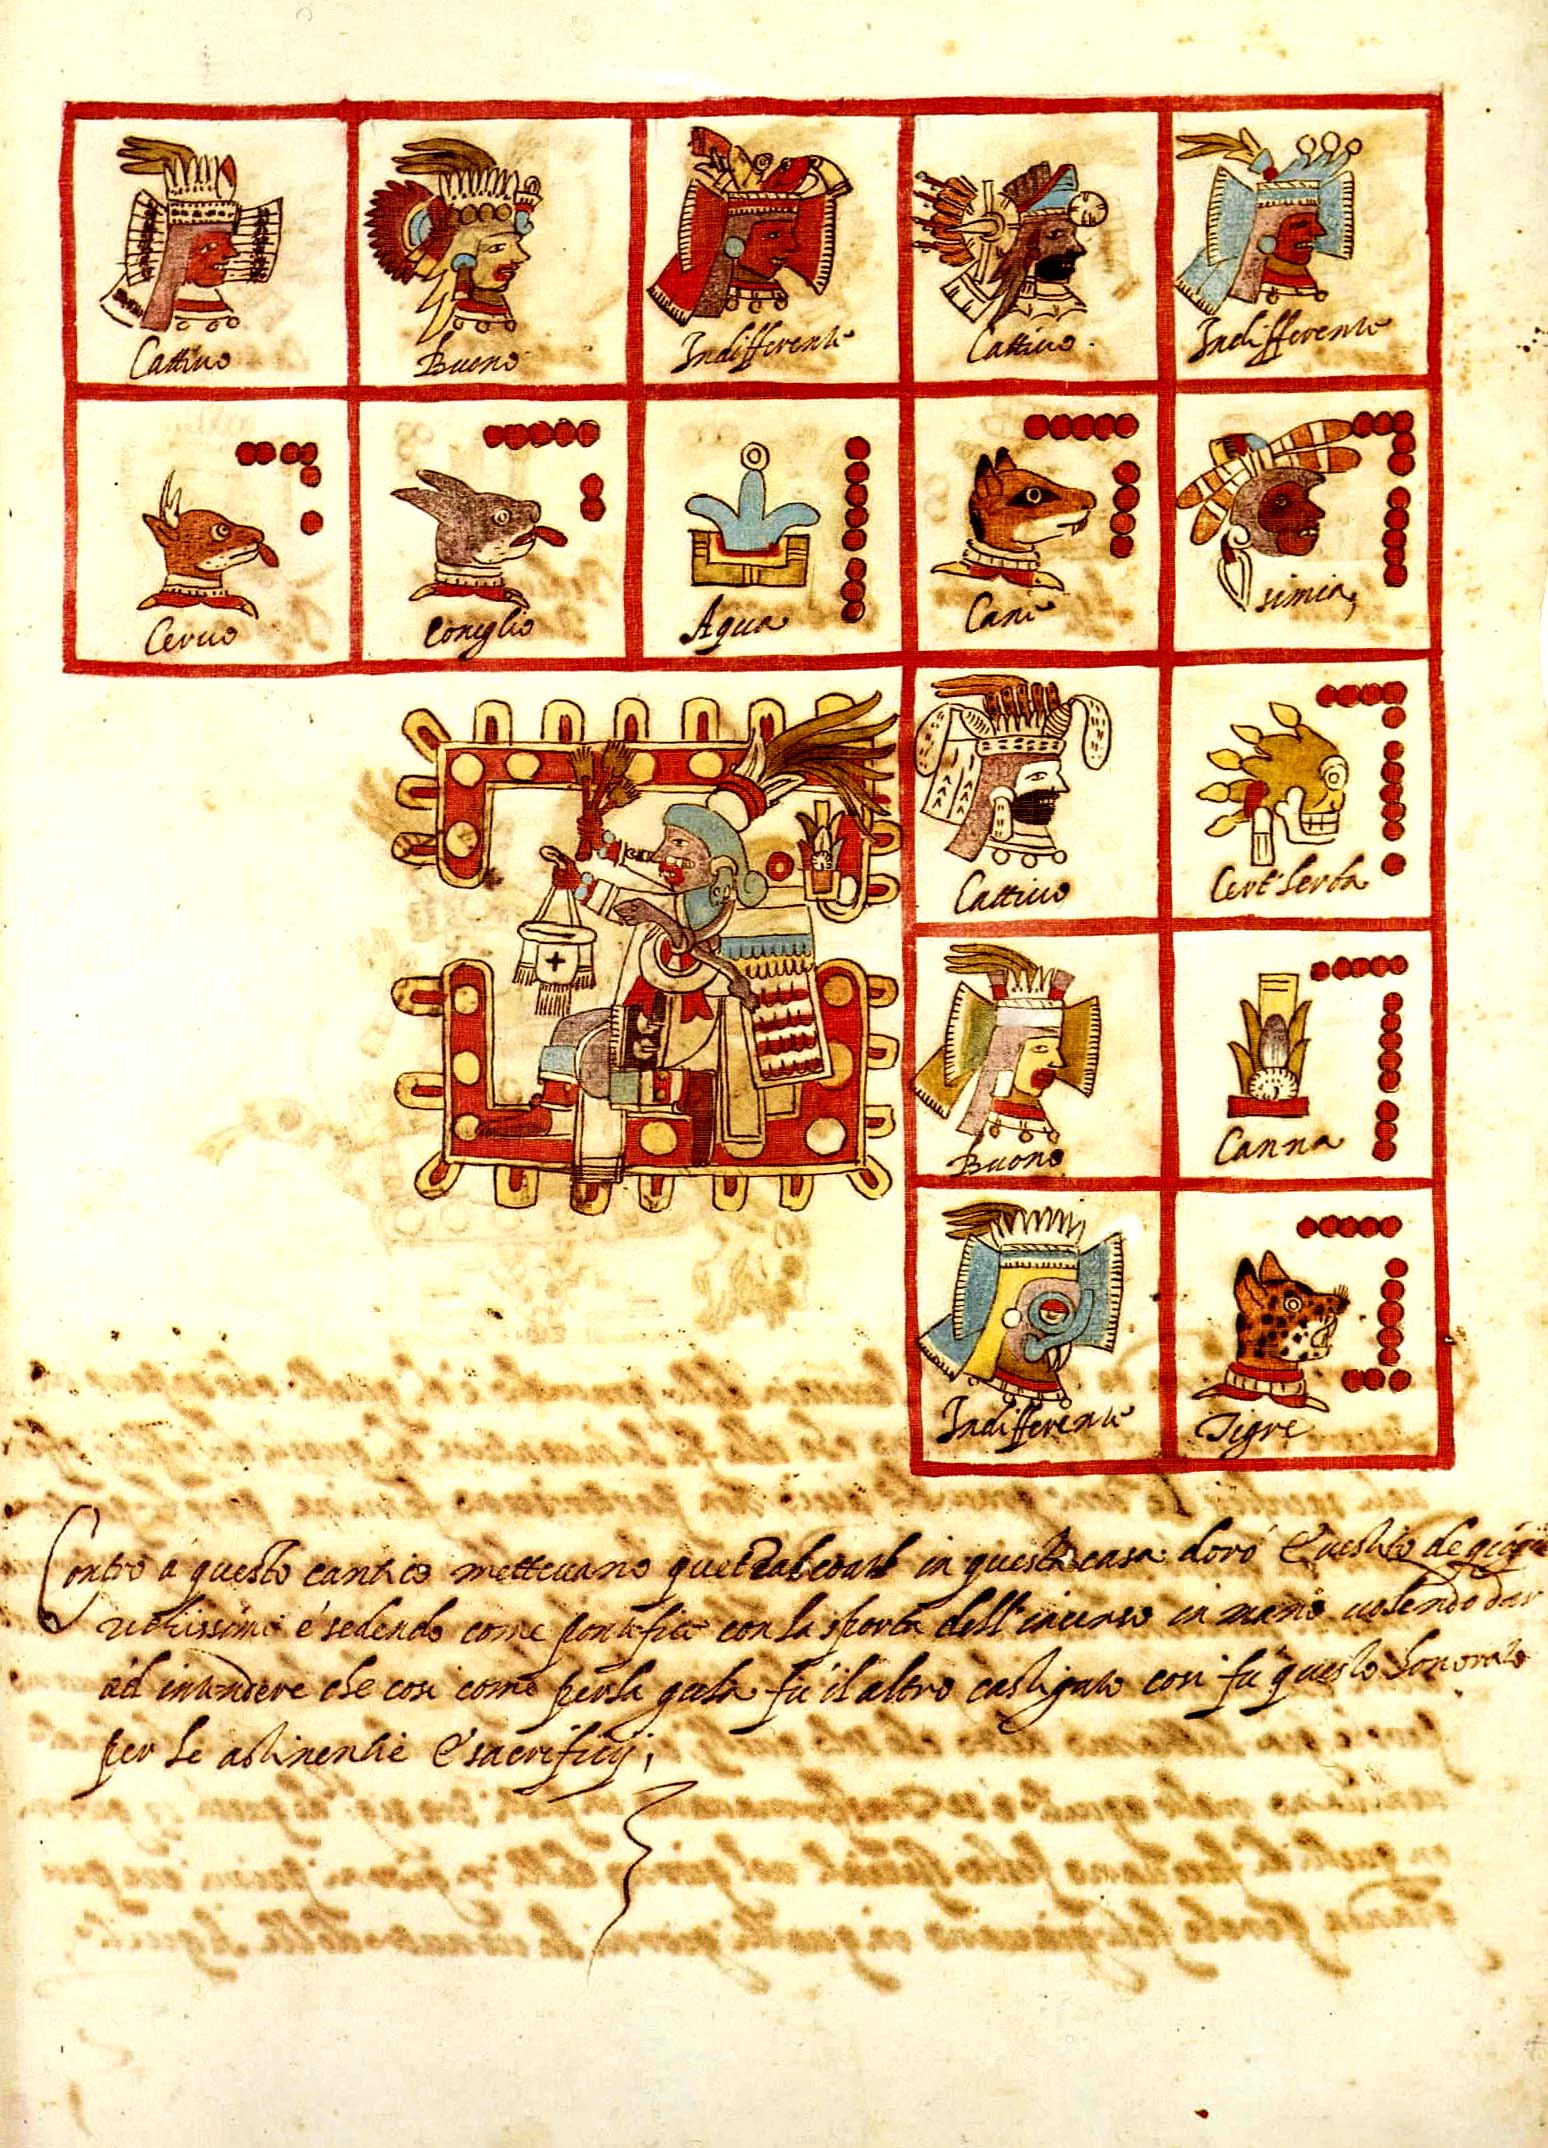 Cattivo
Buono
Indifferente
Cattivo
Indifferente
Cervo
Coniglio
Aqua
Cane
simia
Cattivo
Cert' herba
Buono
Canna
Indifferente
Tigre
Contro a questo cantico mettevano quetzalcoatl in questa casa d'oro e vestito de gioie
richissimi e sedendo come pontifice con la sporta dell'incenso in mano volendo dar
ad intendere che cosi come per la gola fu il altro castigato cosi fu questo honorato
per le astinentie e sacrificij